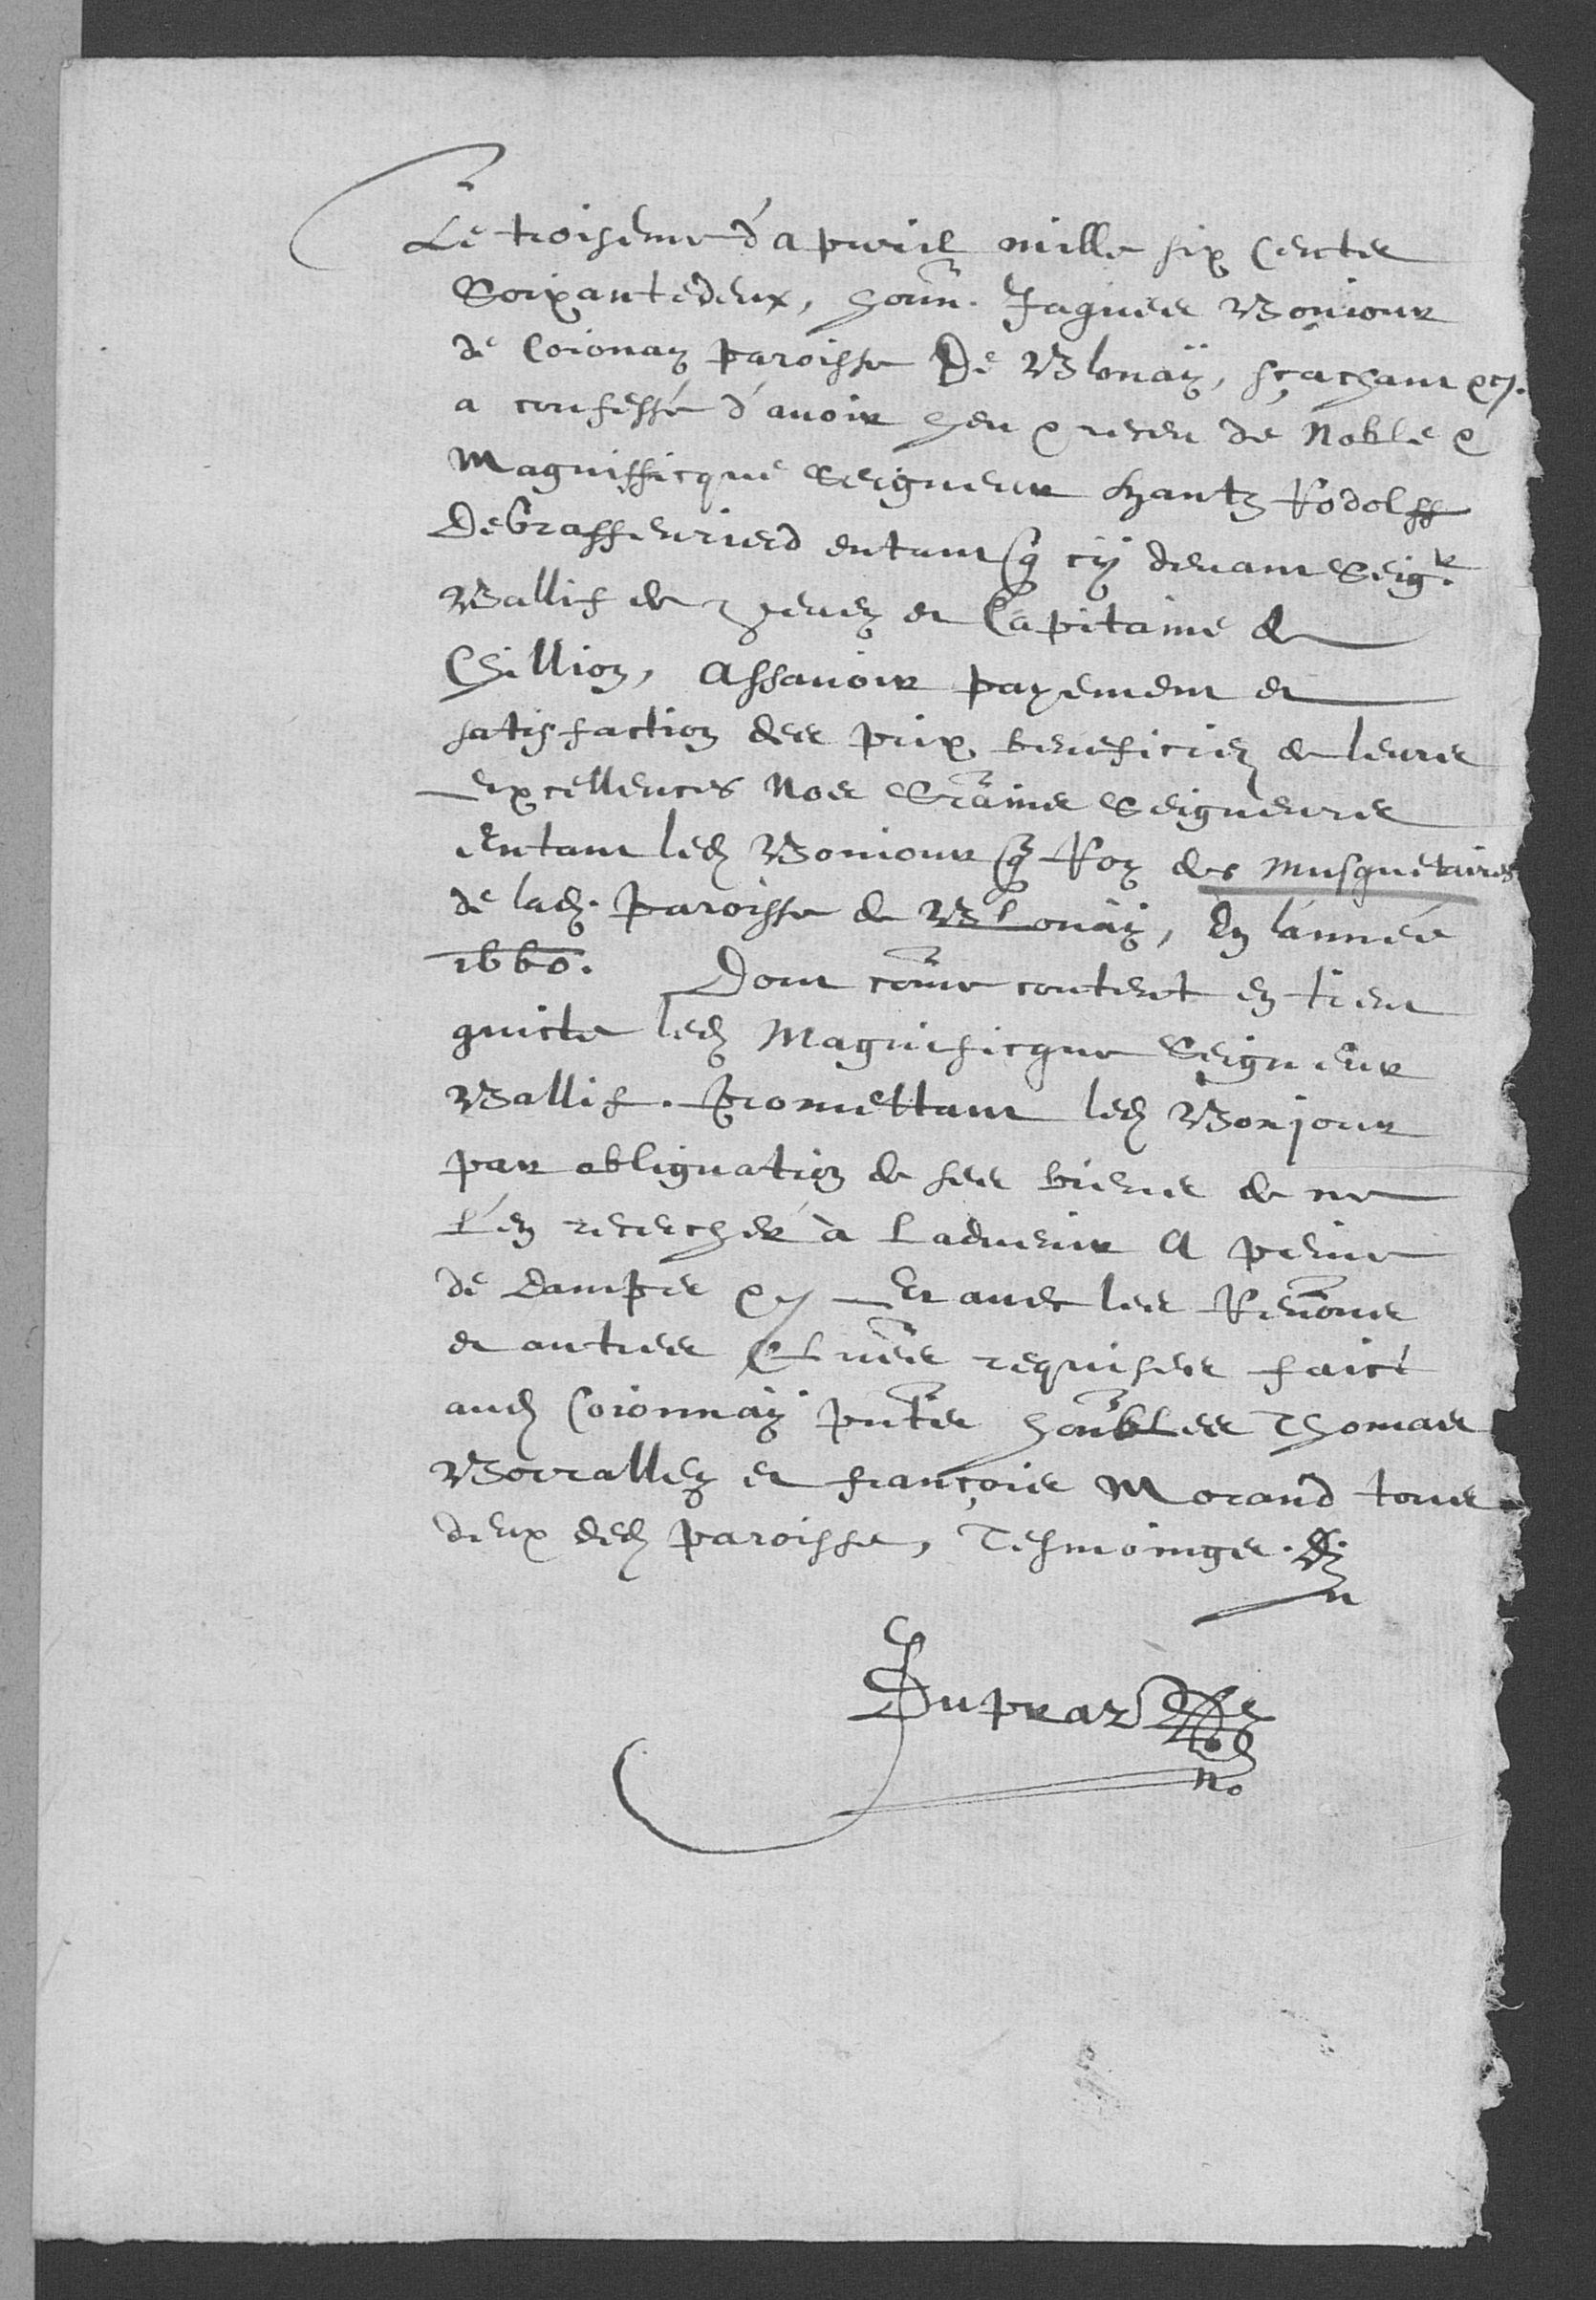 Le troiseme d'apvril mille six Cents
Soixantedeux, honn. Jaques Bonjour
de Coionay paroisse De Blonaÿ, sçachant &c.
a confessé d'avoir heu & receu de Noble &
Magnifficque Seigneur Hantz Rodolff
DeGraffenried entant q cÿ devant Seigr.
Ballif de Vevey et Capitaine de
Chillion, Assavoir payement et
satisfaction des prix beneficiez de leurs
excellences Nos Sraines Seigneurs
entant led Bonjour q Roy des Musquetaires
de lad. Paroisse de Blonaÿ, En l'année
1660. Dont come content en tient
quicte led Magnificque Seigneur
Ballif. Promettant led Bonjour
par obliguation de ses biens de ne
l'en rerecher à l'advenir A peine
de damps &c Et avec les Renons
et autres Clnes requises faict
aud Coionnaÿ pntes honbles Thomas
Borrallez et françois Morand tous
deux ded paroisse, Tesmoings.
Dupraz
no